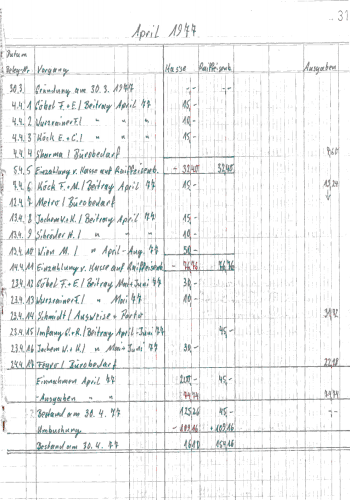 31
April 1977
Datum
Beleg-Nr Vorgang Kasse Raiffeisenb. Ausgaben
30.3. Gründung am 30.3.1977 -,- -,-
4.4. 1 Göbel F.+E./ Beitrag April 77 15,-
4.4. 2 / " " " 10,-
4.4. 3 Höck E.+C./ " " " 15,-
4.4. 4 / Bürobedarf
5.4. 5 Einzahlung v. Kasse auf Raiffeisenb. - 32,40 32,40
6 Höck F.+M./ Beitrag April 77 15,-
12.4. 7 Metro / Bürobedarf
13.4. 8 Jochem V.+K./ Beitrag April 77 15,-
13.4. 9 Schröder H./ " " 10,-
13.4. 10 Wien M. / " April-Aug. 77 50,-
14.4. 11 Einzahlung v. Kasse auf Raiffeisenb. - 76,76 76,76
23.4. 12 Göbel F.+E./ Beitrag Mai+Juni 77 30,-
23.4. 13 / " Mai 77 10,-
23.4. 14 Schmidt / Ausweise + Porto
23.4. 15 / Beitrag April-Juni 77 45,-
23.4. 16 Jochem V.+K./ " Mai+Juni 77 30,-
24.4. 17 / Bürobedarf
Einnahmen April 77 200,- 45,-
Ausgaben " "
Bestand am 30.4.77 125,26 45,-
Umbuchung - 109,16 + 109,16
Bestand am 30.4.77 16,10 154,16